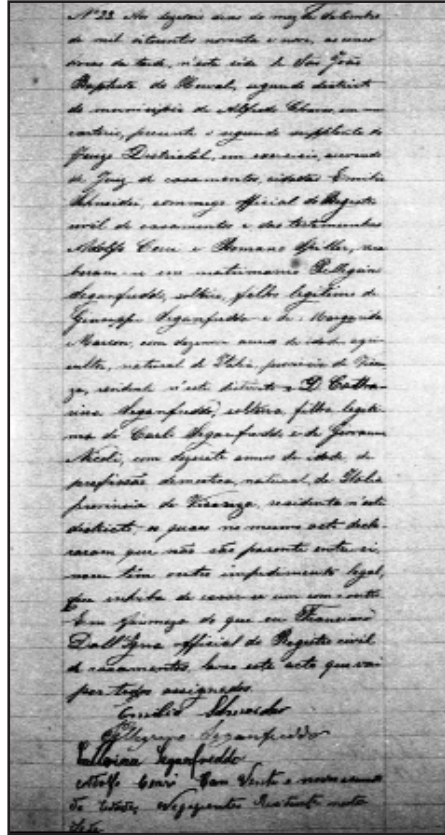 Nº 22 Aos dezeseis dias do mez de Setembro
de mil oitocentos noventa e nove, as cinco
horas da tarde, n'esta séde de São João
Baptista do Herval, segundo districto
do municipio de Alfredo Chaves, em meu
cartorio, presente o segundo supplente do
Juizo Districtal, em exercicio, servindo
de Juiz de casamentos, cidadão Emilio
Schneider, commigo official do Registro
civil de casamentos e das testemunhas
Adolfo e Romano Spiller, rece
beram-se em matrimonio Pellegrino
Seganfreddo, solteiro, filho legitimo de
Giuseppe Seganfreddo e de Margarida
Marcon, com dezenove annos de idade, agri
cultor, natural de Italia, provincia de Vicen
za, residente n'este districto e D. Catha
rina Seganfreddo, solteira, filha legiti
ma de Carlo Seganfreddo e de Giovanna
Nicoli, com dezesete annos de idade, de
profissão domestica, natural de Italia
provincia de Vicenza, residente n'este
districto, os quaes no mesmo acto decla
raram que não são parente entre si,
nem têm outro impedimento legal,
que inhiba de casar-se um com o outro
Em firmeza do que eu Francisco
Dall'Igna official do Registro civil
de casamentos, lavrei este acto que vai
por todos assignados.
Emilio Schneider
Pellegrino Seganfreddo
Catterina Seganfreddo
Adolfo Com Vinte e nove annos
da idade, Residente neste